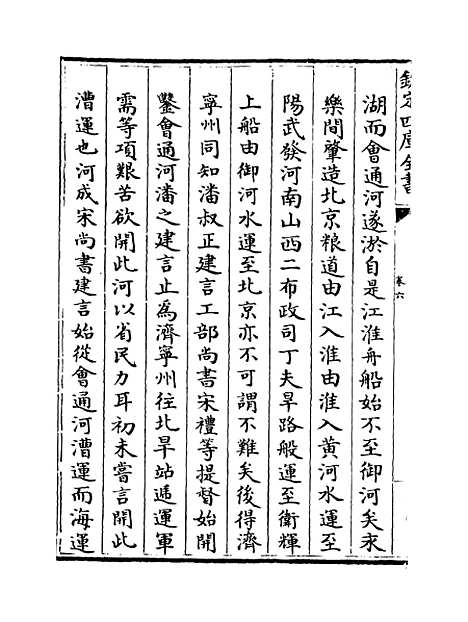 欽定四庫全書
卷六
湖而會通河遂淤自是江淮舟船始不至御河矣永
樂間肇造北京粮道由江入淮由淮入黄河水運至
陽武發河南山西二布政司丁夫旱路般運至衛輝
上船由御河水運至北京亦不可謂不難矣後得濟
寧州同知潘叔正建言工部尚書宋禮等提督始開
鑿會通河潘之建言止為濟寧州往北旱站逓運軍
需等項艱苦欲開此河以省民力耳初未嘗言開此
漕運也河成宋尚書建言始從會通河漕運而海運